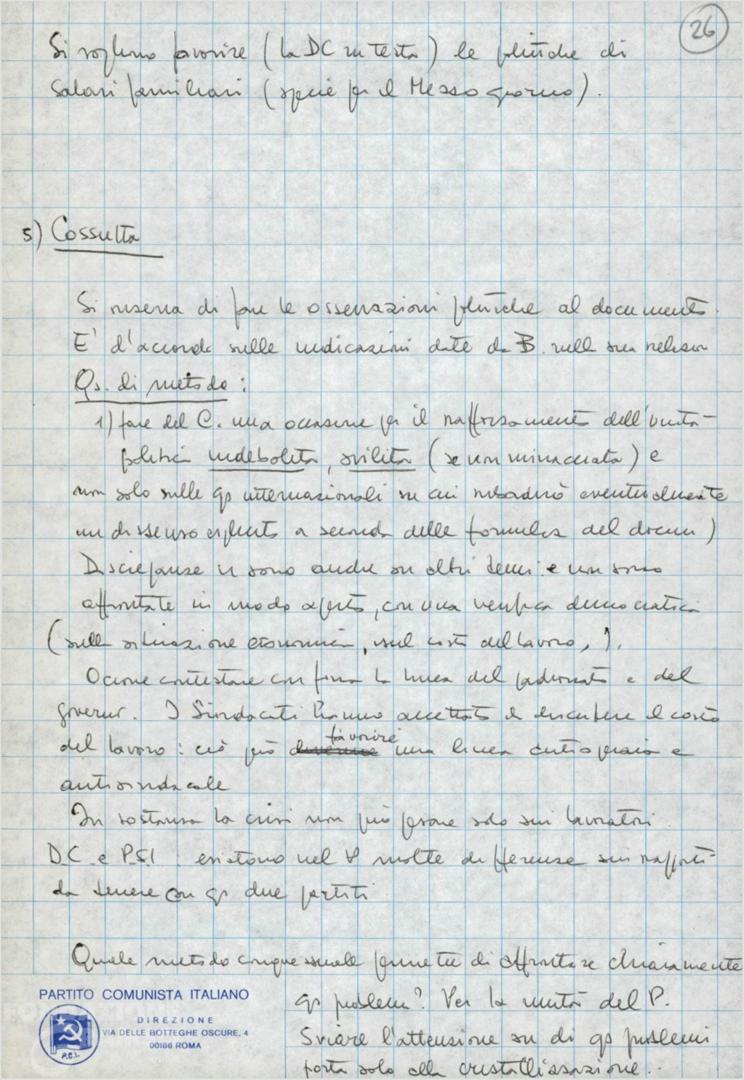 26
Si vogliono favorire (la DC in testa) le politiche di
salari familiari (specie per il Mezzogiorno).
5) Cossutta
Si riserva di fare le osservazioni politiche al documento.
E' d'accordo sulle indicazioni date da B. nella sua relazion
Qs. di metodo:
1) fare del C. una occasione per il rafforzamento dell'unità
politica indebolita, svilita (se non minacciata) e
non solo sulle qs internazionali su cui ribadirà eventualmente
un dissenso esplicito a seconda delle formulaz del docum)
Discrepanze vi sono anche su altri temi e non sono
affrontate in modo aperto, con una verifica democratica
(sulla situazione economica, sul costo del lavoro, ).
Occorre contestare con forza la linea del padronato e del
governo. I Sindacati hanno accettato di discutere il costo
del lavoro: ciò può favorire una linea antioperaia e
antisindacale
In sostanza la crisi non può pesare solo sui lavoratori.
DC e PSI: esistono nel P molte differenze sui rapporti
da tenere con qs due partiti.
Quale metodo congressuale permette di affrontare chiaramente
qs problemi? Per la unità del P.
Sviare l'attenzione su di qs problemi
porta solo alla cristallizzazione..
PARTITO COMUNISTA ITALIANO
DIREZIONE
VIA DELLE BOTTEGHE OSCURE, 4
00186 ROMA
P.C.I.